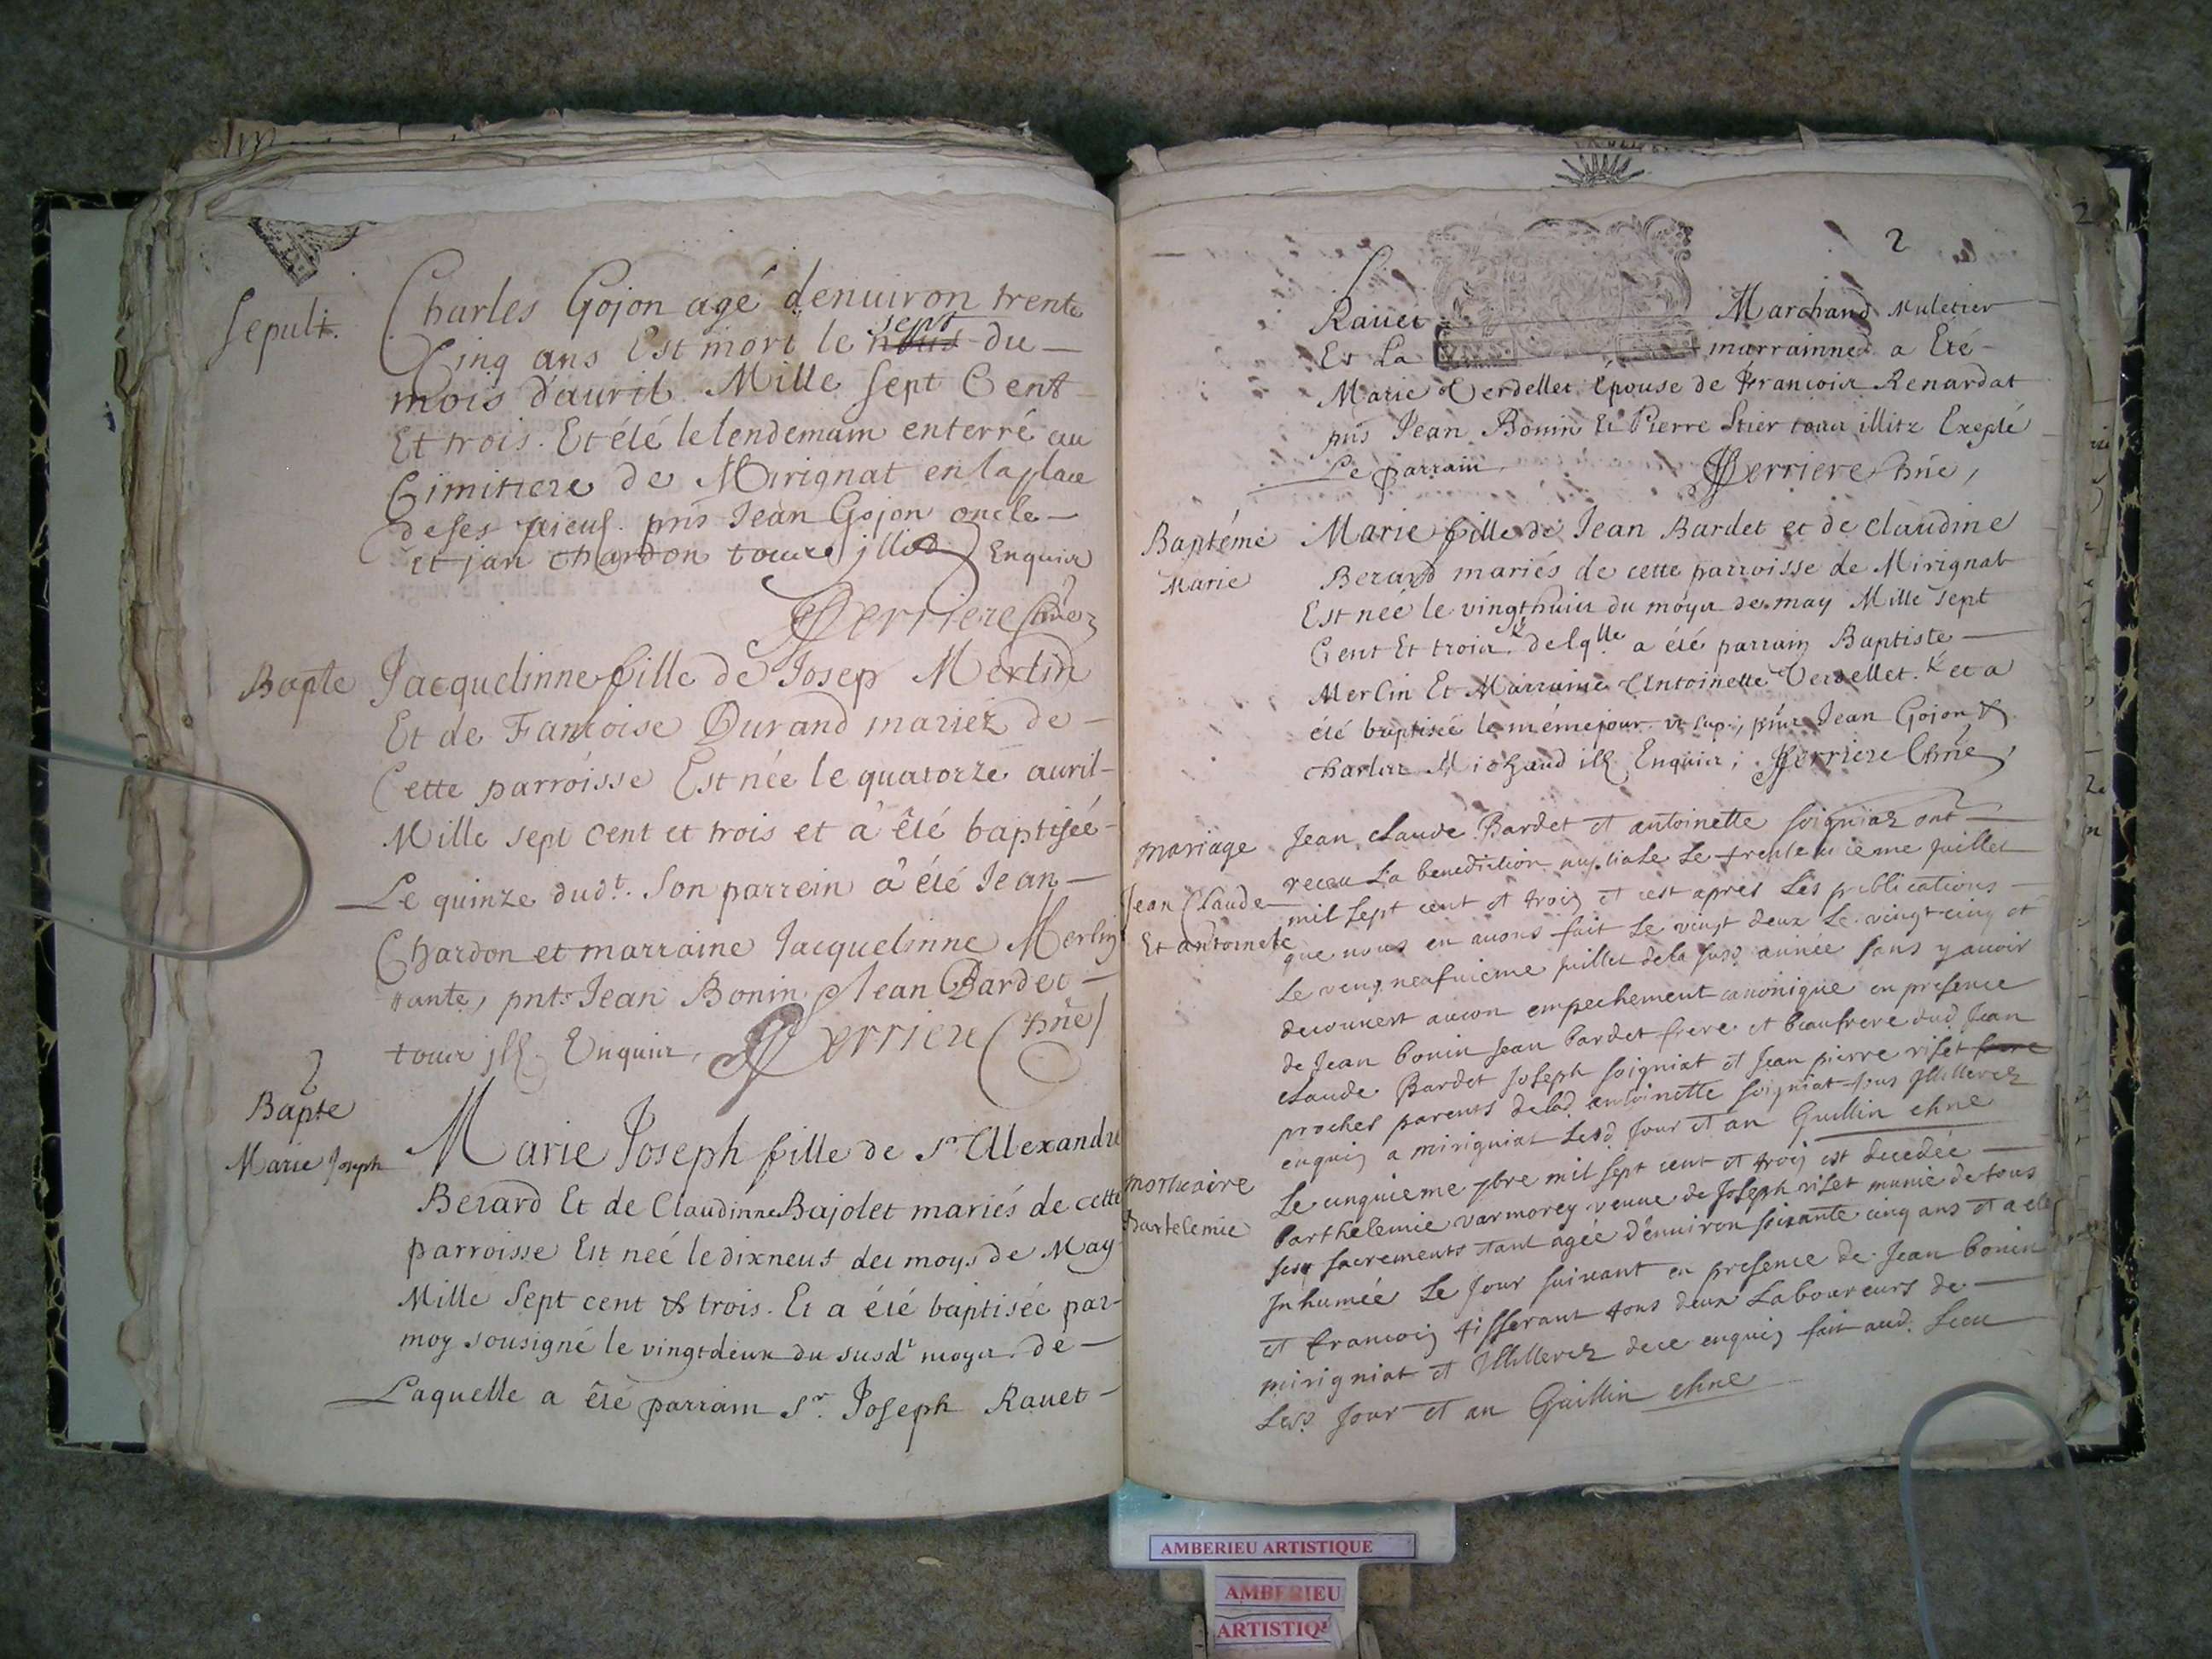 Sepult.
Charles Gojon agé denuiron trente
Cinq ans Est mort le sept du
mois dauril Mille Sept Cent
Et trois. Et été le lendemain enterré au
Cimitiere de Mirignat en la place
de ses aieuls. pnts Jean Gojon oncle
et jan chardon Enquis
Perriere
Bapte
Jacquelinne fille de Josep Merlin
Et de Francoise Durand mariez de
Cette parroisse Est née le quatorze auril
Mille sept cent et trois et à êté baptisée
Le quinze dudt. Son parrein à été Jean
Chardon et marraine Jacquelinne Merlin
tante, pnts Jean Bonin Jean Bardet
Enquis. Perriere
Bapte
Marie Joseph
Marie Joseph fille de Sr Alexandre
Berard Et de Claudinne Bajolet mariés de cette
parroisse Est neé le dixneuf du moys de May
Mille Sept cent & trois. Et a été baptisée par
moy sousigné le vingtdeux du susdt moys. de
Laquelle a êté parrain Sr. Joseph Rauet
2
Rauet Marchand Muletier
Et La marrainne a Eté
Marie Verdellet Epouse de Francois Renardat
pns Jean Bonin Et Pierre illitz Exepté
Le parrain. Perriere
Baptéme
Marie
Marie fille de Jean Bardet et de Claudine
Berard mariés de cette parroisse de Mirignat
Est neé le vingthuit du moys de may Mille Sept
Cent Et trois. & de lqlle a été parrain Baptiste
Merlin Et Marraine Antoinette Verdellet. & et a
été baptisée le méme jour vt sup, pnts Jean Gojon &
charles Michaud ill Enquis; Perriere
mariage
Jean Claude
Et antoinete
Jean claude Bardet et antoinette soigniaz ont
receu La benediction nuptiale Le juillet
mil sept cent et trois et cest apres Les publications
que nous en auons fait Le vingt deux Le vingt cinq et
Le juillet dela susd année sans y auoir
decouuert aucon empechement canonique en presence
de Jean bonin Jean bardet frere et beaufrere dud Jean
claude Bardet Joseph soigniat et Jean pierre riset
proches parents delad antoinette soigniat tous Illiterez
enquis a mirigniat Lesd Jour et an Guillin
mortuaire
Bartelemie
Le cinquieme 7bre mil sept cent et trois est decedée
barthelemie varmorey veuue de Joseph riset munie de tous
ses sacrements etant agée denuiron soixante cinq ans et a eté
Inhumée Le Jour suiuant en presence de Jean bonin
et francois tisserant tous deux Laboureurs de
mirigniat et Illiterez de ce enquis fait aud. Lieu
Lesd Jour et an Guillin
AMBERIEU ARTISTIQUE
AMBERIEU
ARTISTIQU